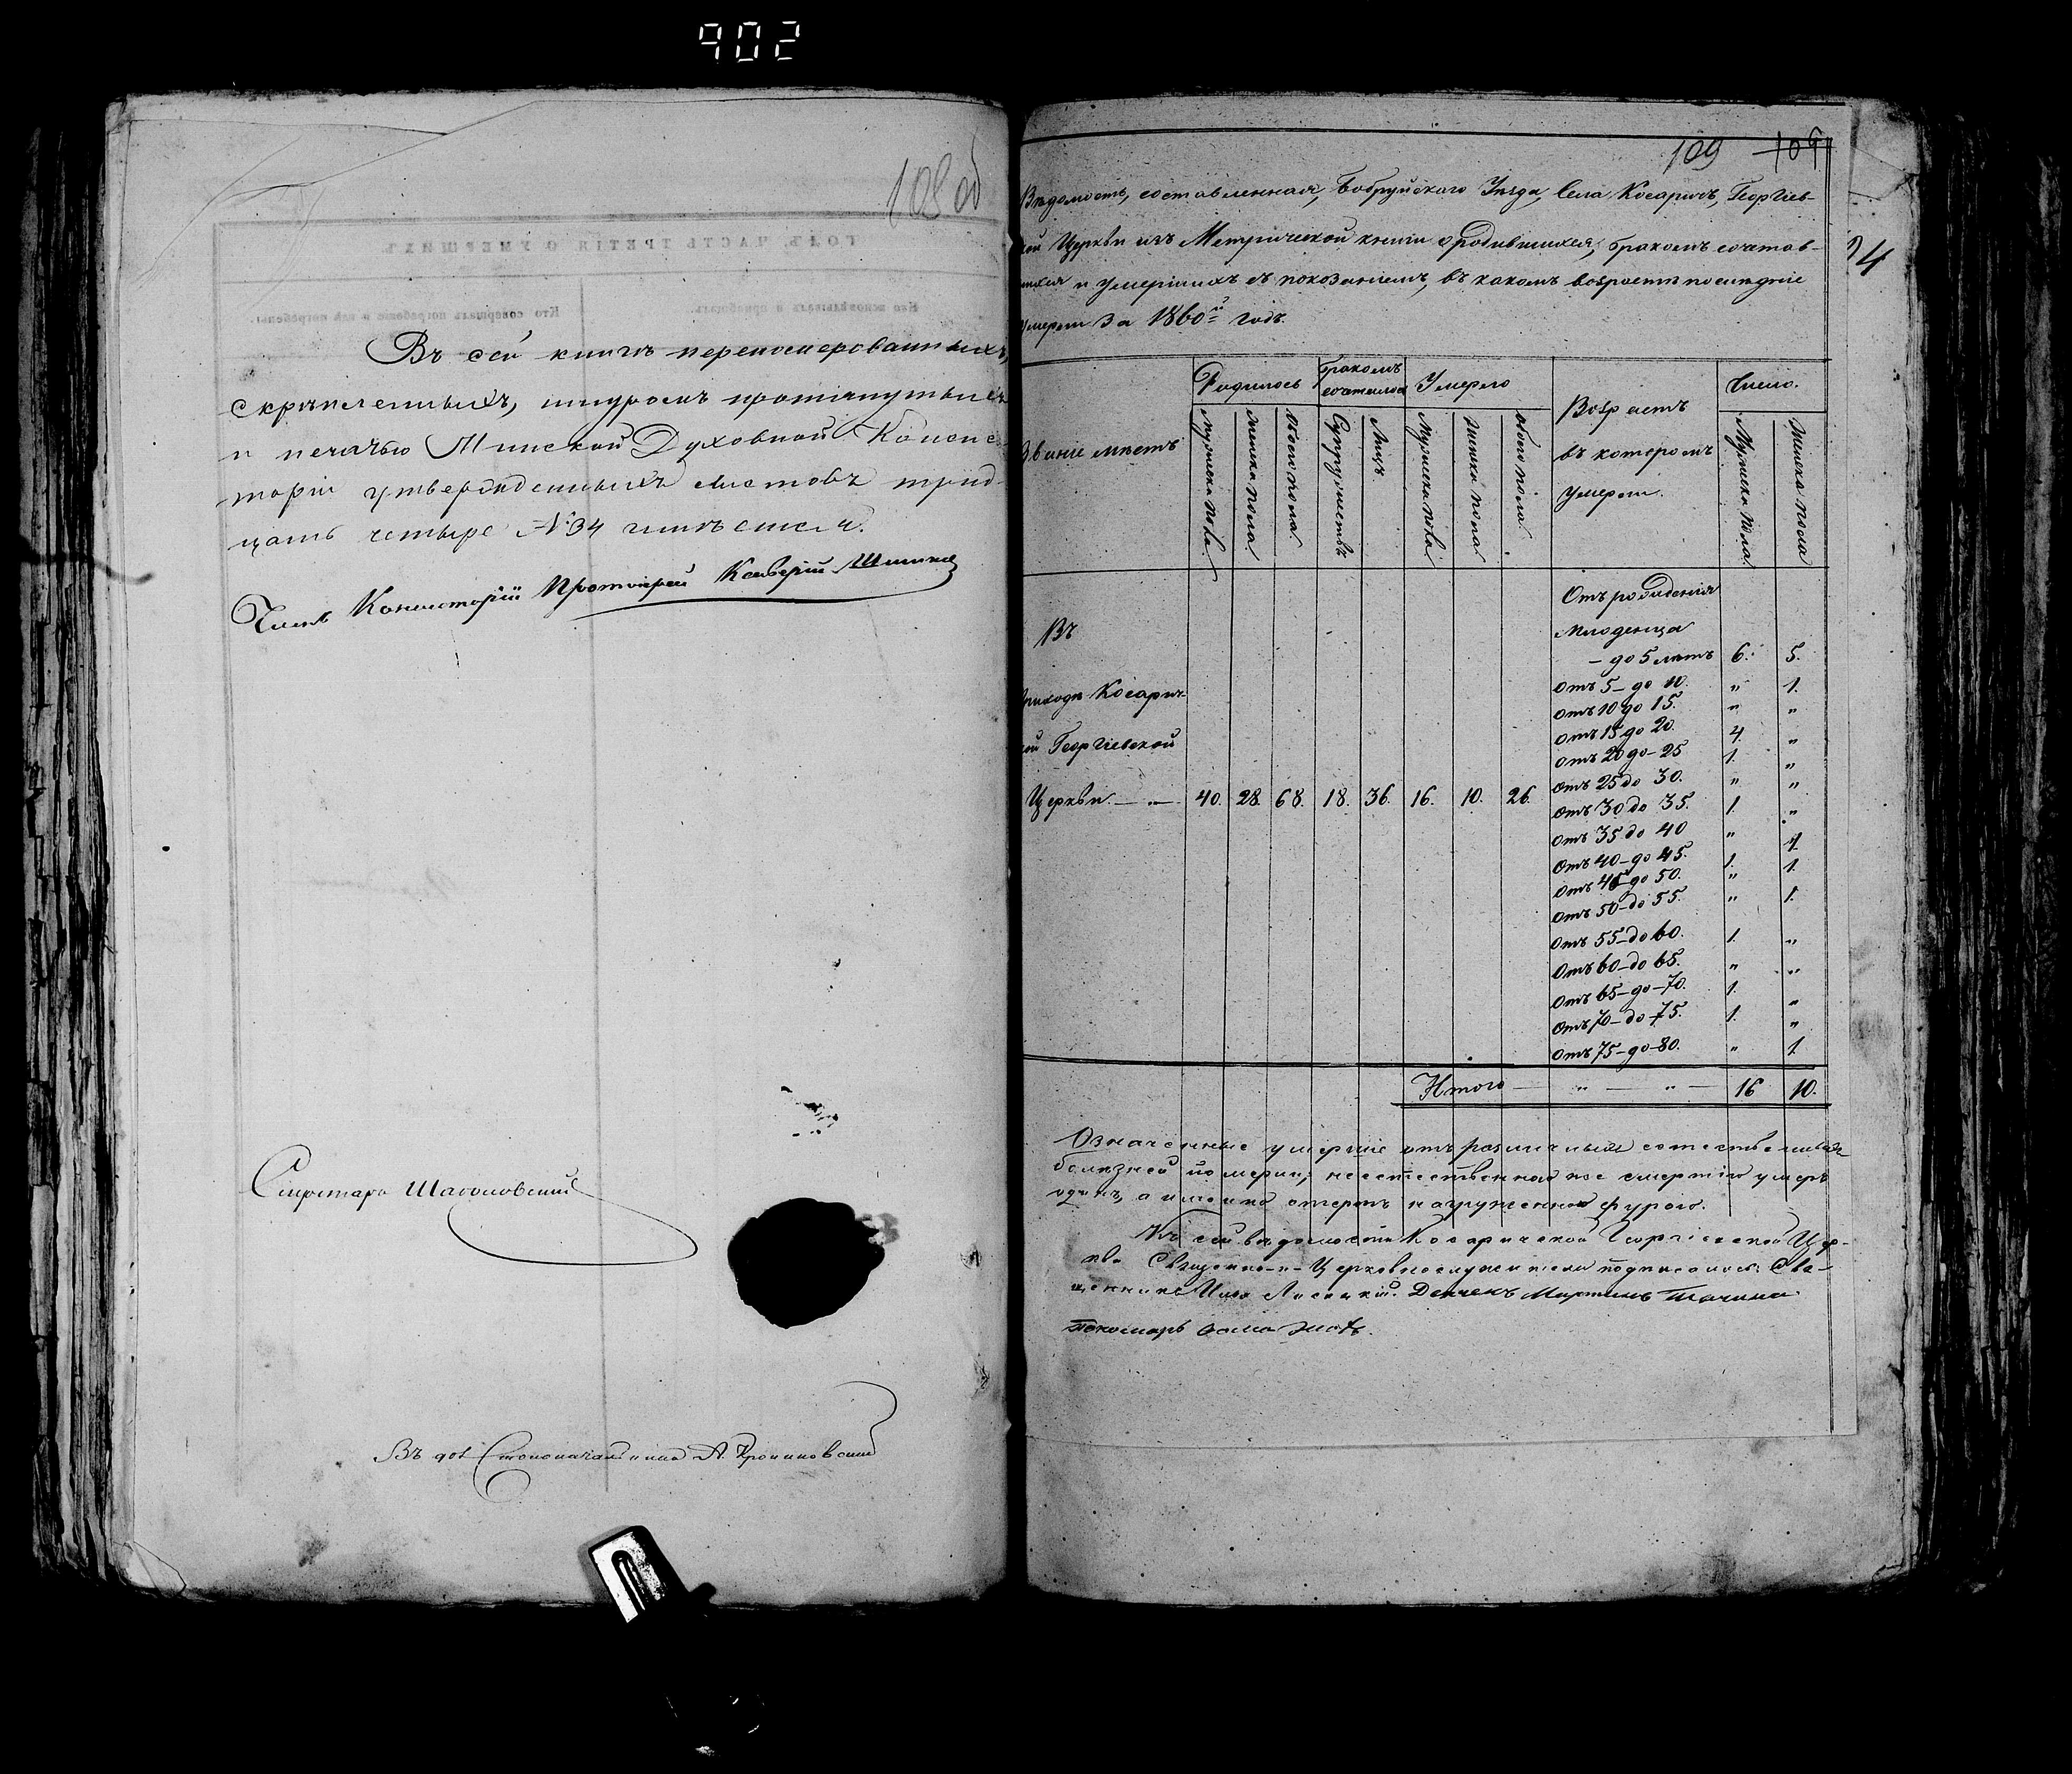 902
108 об
ГОДЪ, ЧАСТЬ ТРЕТІЯ О УМЕРШИХЪ.
Кто исповѣдывалъ и пріобщалъ.
Кто совершалъ погребеніе и гдѣ погребены.
Въ сей книгѣ перенумерованныхъ,
скрѣпленныхъ, шнуромъ протянутыхъ
и печатью Минской Духовной Консис-
торіи утвержденныхъ листовъ трид-
цать четыре №34 листовъ.
Членъ Консисторіи Протоіерей
Секретарь
Въ дол Столоначальника А.
109 109
4
Вѣдомость, составленная, Бобруйского Уѣзда, Села Косаричъ, Георгіев-
кой Церкви изъ Метрической книги о родившихся, бракомъ сочетав-
шихся и умершихъ съ показаніемъ, въ какомъ возрастѣ послѣдніе
умерли За 1860й годъ.
Звание мѣстъ
Родилось
Бракомъ сочеталось
Умерло
Возрастъ
въ которомъ
умерли.
Число.
Мужеска пола
Женска пола
Обоего пола
Супружествъ
Лицъ
Мужеска пола
Женска пола
Обоего пола
Мужеска пола
Женска пола
Въ
приходѣ Косарич-
кой Георгіевской
Церкви. — „ — 40. 28. 68. 18. 36. 16. 10. 26.
Отъ рожденія
младенца
– до 5 лѣтъ 6. 5.
Отъ 5 – до 10. „ 1.
Отъ 10 до 15. „ „
Отъ 15 до 20. 4. „
Отъ 20 до – 25 1. „
Отъ 25 до 30. „ „
Отъ 30 до 35. 1. „
Отъ 35 до 40 „ 1.
Отъ 40 – до 45. 1. 1.
Отъ 45 до 50. „
Отъ 50 – до 55. „ 1.
Отъ 55 – до 60. 1. „
Отъ 60 – до 65. „ „
Отъ 65 – до – 70. 1. „
Отъ 70 – до – 75. 1. „
Отъ 75 – до – 80. „ 1
Итого — „ — „ — 16 10.
Означенные умершіе отъ различныхъ естественныхъ
болѣзней померли, неестественною же смертію умеръ
одинъ, а именно стертъ нагруженной фурою.
Къ сей вѣдомости Косаричской Георгіевской Цер-
кви Священно-и-Церковнослужители подписались: Свя-
щенникъ Илія Лисецкій. Дьячекъ Мартинъ
Пономарь Ѳома